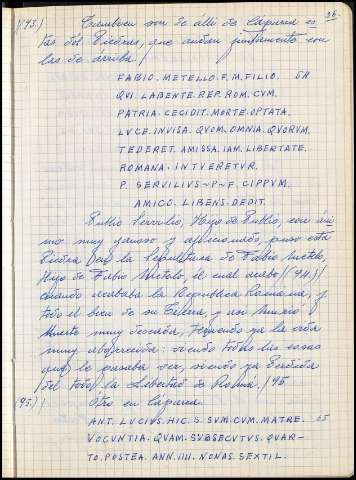 36.
(93.) Tambien son de alli de Cáparra es
tas dos Piedras, que andan juntamente con
las de arriba.
FABIO. METELLO. F. M. FILIO. 54
QVI. LABENTE. REP. ROM. CVM.
PATRIA. CECIDIT. MORTE. OPTATA.
LVCE. INVISA. QVOM. OMNIA. QVORVM.
TEDERET. AMISSA. IAM. LIBERTATE.
ROMANA. INTVERETVR.
P. SERVILIVS ~ P ~ F. CIPPVM.
AMICO. LIBENS. DEDIT.
Publio Servilio, Hijo de Publio, con áni
mo muy ganoso y aficionado, puso esta
Piedra en la Sepultura de Fabio Metelo,
Hijo de Fabio Metelo, el cual acabo /(94.)/
cuando acababa la Republica Romana, y
todo el bien de su Tierra, y asi murió
Muerte muy deseada, teniendo ya la vida
muy aborrecida: viendo todas las cosas
que le pesaba ver, siendo ya Perdida
del todo la Libertad de Roma. /95
(95.)/ Otro en Cáparra.
ANT. LVCIVS. HIC. S. SVM. CVM. MATRE. 55
VOCVNTIA. QVAM. SVBSECVTVS. QVAR-
TO. POSTEA. ANN. IIII. NONAS. SEXTIL.